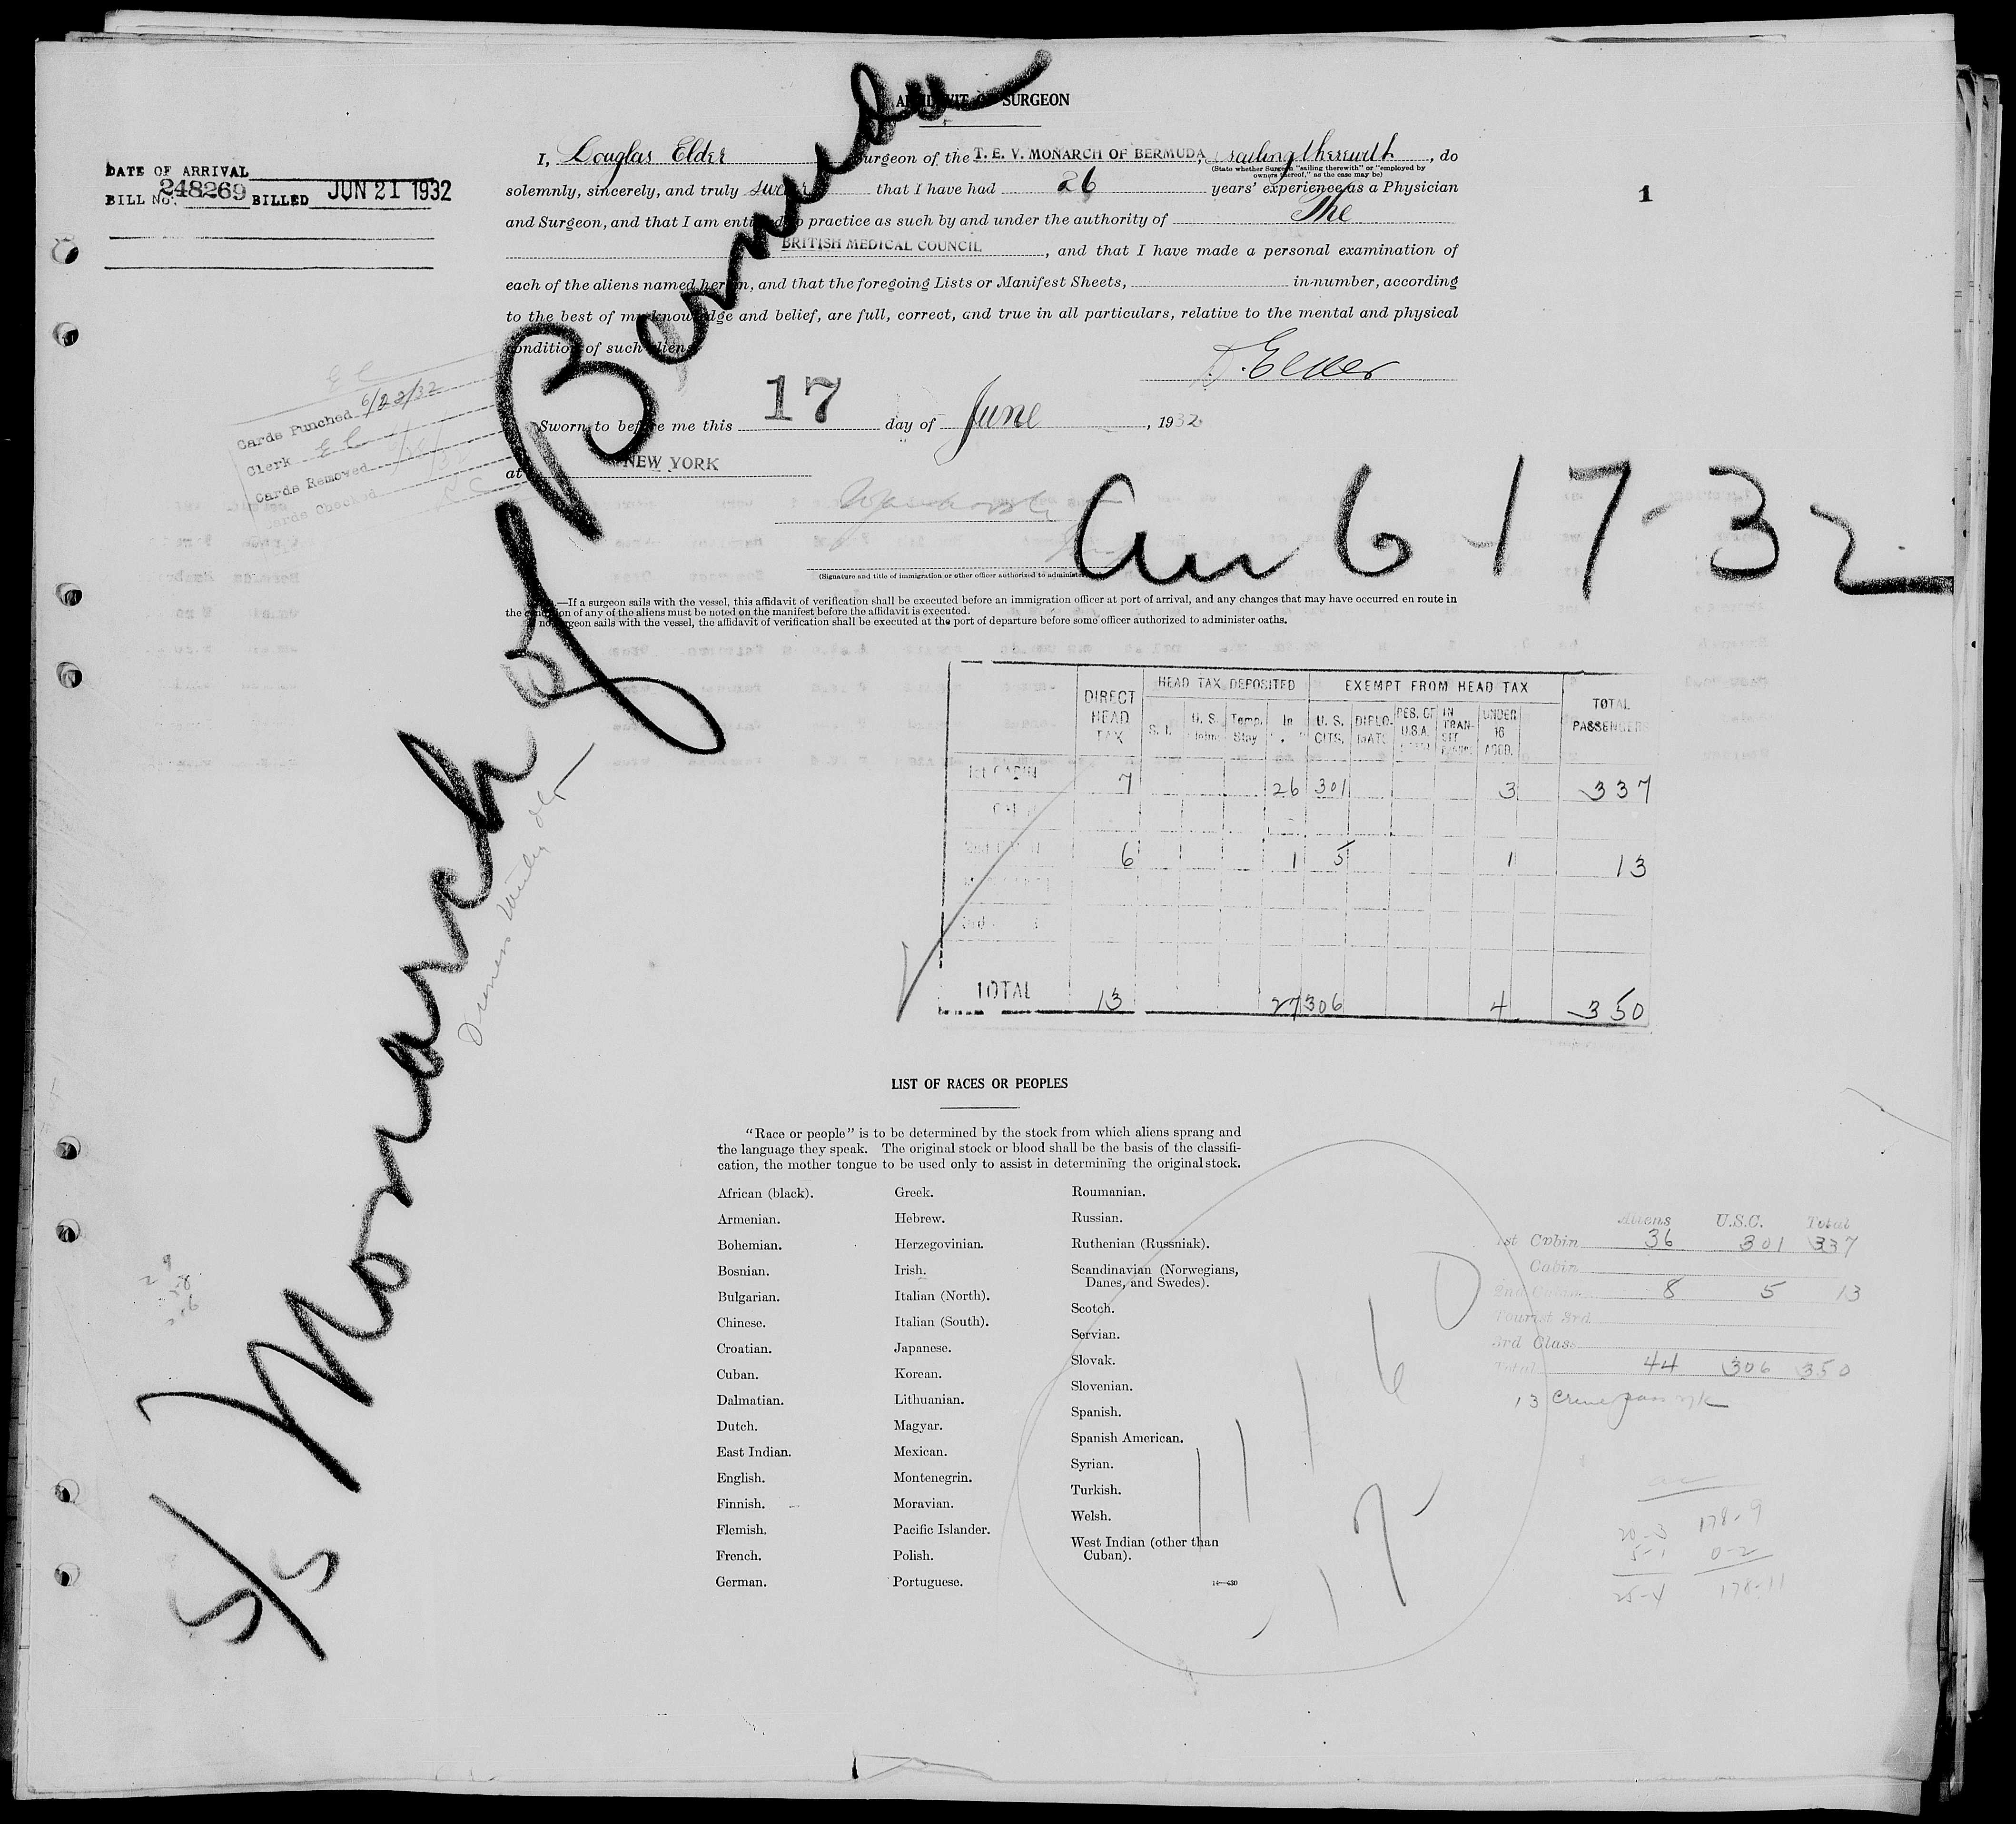 AFFIDAVIT OF SURGEON
DATE OF ARRIVAL
BILL No. 248269 BILLED JUN 21 1932
1
I, Douglas Elder Surgeon of the T. E. V. MONARCH OF BERMUDA, sailing therewith, do
(State whether Surgeon "sailing therewith" or "employed by owners thereof," as the case may be)
solemnly, sincerely, and truly swear that I have had 26 years' experience as a Physician
and Surgeon, and that I am entitled to practice as such by and under the authority of The
BRITISH MEDICAL COUNCIL, and that I have made a personal examination of
each of the aliens named herein, and that the foregoing Lists or Manifest Sheets, in number, according
to the best of my knowledge and belief, are full, correct, and true in all particulars, relative to the mental and physical
condition of such aliens
D. Elder
Sworn to before me this 17 day of June, 1932
at NEW YORK
(Signature and title of immigration or other officer authorized to administer
—If a surgeon sails with the vessel, this affidavit of verification shall be executed before an immigration officer at port of arrival, and any changes that may have occurred en route in
the condition of any of the aliens must be noted on the manifest before the affidavit is executed.
no surgeon sails with the vessel, the affidavit of verification shall be executed at the port of departure before some officer authorized to administer oaths.
E C
Cards Punched 6/23/32
Clerk E C
Cards Removed
Cards Checked
S/S Monarch of Bermuda
Arr 6-17-32
DIRECT HEAD TAX
HEAD TAX DEPOSITED
EXEMPT FROM HEAD TAX
TOTAL PASSENGERS
S. I. U. S. Temp. Stay In U. S. CITS. DIPLOMATS RES. OF U.S.A. IN TRANSIT UNDER 16 ACCD.
1st CABIN 7 26 301 3 337
6 1 5 1 13
3rd
TOTAL 13 27 306 4 350
LIST OF RACES OR PEOPLES
"Race or people" is to be determined by the stock from which aliens sprang and
the language they speak. The original stock or blood shall be the basis of the classifi-
cation, the mother tongue to be used only to assist in determining the original stock.
African (black).
Armenian.
Bohemian.
Bosnian.
Bulgarian.
Chinese.
Croatian.
Cuban.
Dalmatian.
Dutch.
East Indian.
English.
Finnish.
Flemish.
French.
German.
Greek.
Hebrew.
Herzegovinian.
Irish.
Italian (North).
Italian (South).
Japanese.
Korean.
Lithuanian.
Magyar.
Mexican.
Montenegrin.
Moravian.
Pacific Islander.
Polish.
Portuguese.
Roumanian.
Russian.
Ruthenian (Russniak).
Scandinavian (Norwegians,
Danes, and Swedes).
Scotch.
Servian.
Slovak.
Slovenian.
Spanish.
Spanish American.
Syrian.
Turkish.
Welsh.
West Indian (other than
Cuban).
Aliens U.S.C. Total
1st Cabin 36 301 337
Cabin
2nd Cabin 8 5 13
Tourist 3rd
3rd Class
Total 44 306 350
13
20-3 178-9
5-1 0-2
25-4 178-11